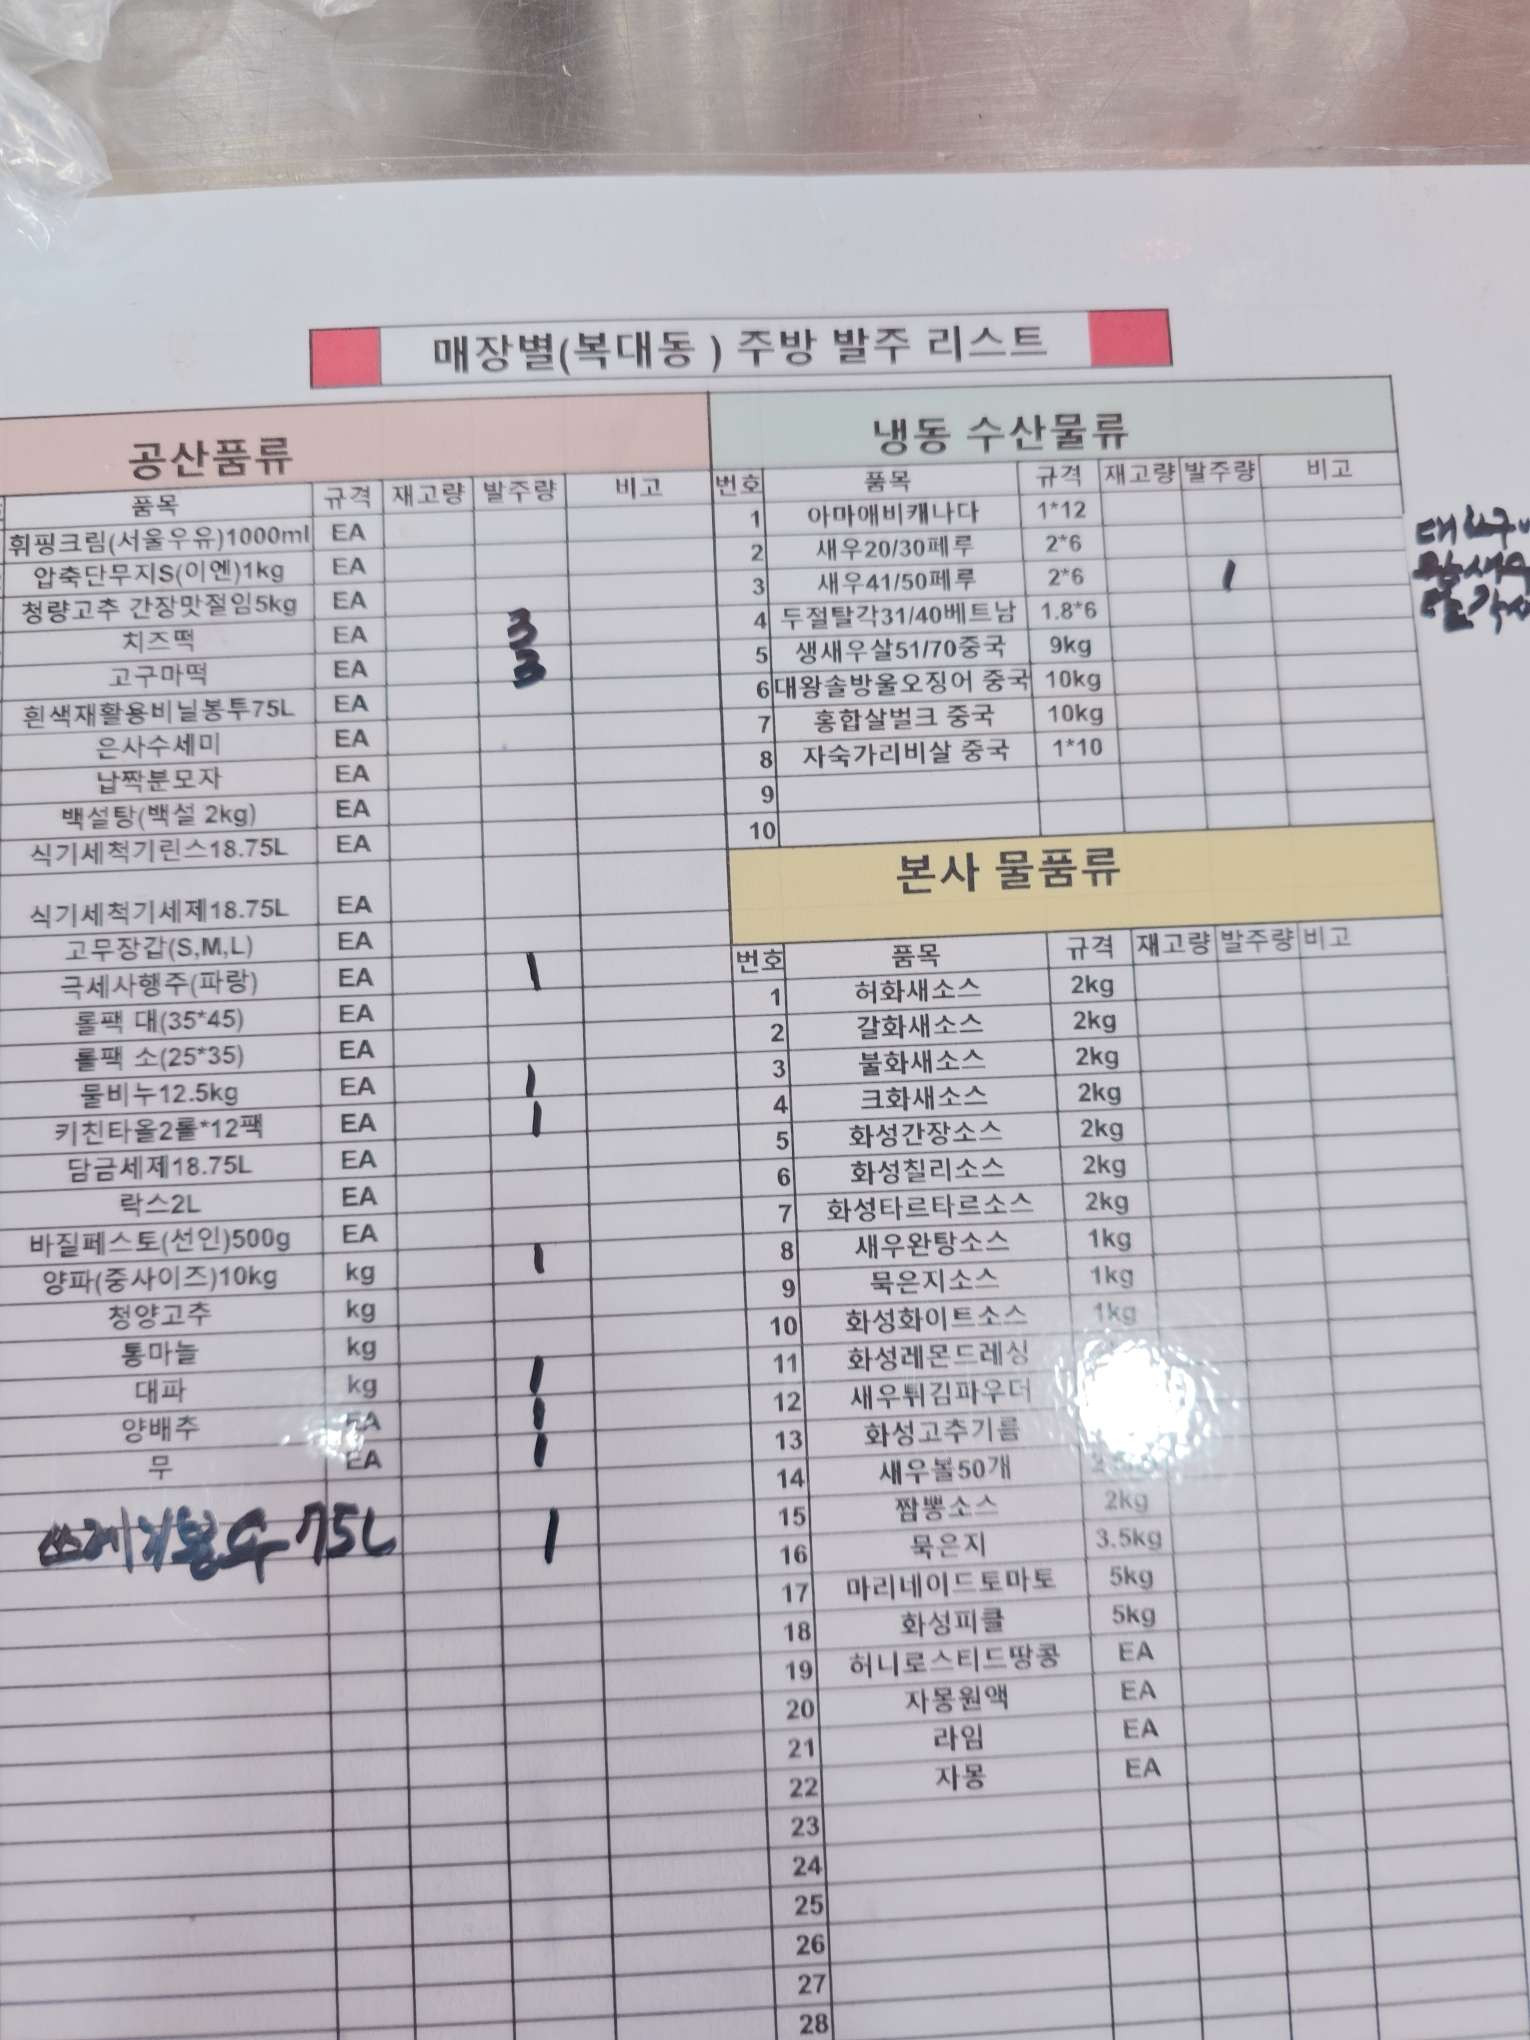 매장별(복대동 ) 주방 발주 리스트
공산품류
품목 규격 재고량 발주량 비고
휘핑크림(서울우유)1000ml EA
압축단무지S(이엔)1kg EA
청량고추 간장맛절임5kg EA
치즈떡 EA 3
고구마떡 EA 3
흰색재활용비닐봉투75L EA
은사수세미 EA
납짝분모자 EA
백설탕(백설 2kg) EA
식기세척기린스18.75L EA
식기세척기세제18.75L EA
고무장갑(S,M,L) EA
극세사행주(파랑) EA 1
롤팩 대(35*45) EA
롤팩 소(25*35) EA
물비누12.5kg EA 1
키친타올2롤*12팩 EA 1
담금세제18.75L EA
락스2L EA
바질페스토(선인)500g EA
양파(중사이즈)10kg kg 1
청양고추 kg
통마늘 kg
대파 kg 1
양배추 EA 1
무 EA 1
75L 1
냉동 수산물류
번호 품목 규격 재고량 발주량 비고
1 아마애비캐나다 1*12
2 새우20/30페루 2*6
3 새우41/50페루 2*6 1
4 두절탈각31/40베트남 1.8*6
5 생새우살51/70중국 9kg
6 대왕솔방울오징어 중국 10kg
7 홍합살벌크 중국 10kg
8 자숙가리비살 중국 1*10
9
10
본사 물품류
번호 품목 규격 재고량 발주량 비고
1 허화새소스 2kg
2 갈화새소스 2kg
3 불화새소스 2kg
4 크화새소스 2kg
5 화성간장소스 2kg
6 화성칠리소스 2kg
7 화성타르타르소스 2kg
8 새우완탕소스 1kg
9 묵은지소스 1kg
10 화성화이트소스 1kg
11 화성레몬드레싱
12 새우튀김파우더
13 화성고추기름
14 새우볼50개
15 짬뽕소스 2kg
16 묵은지 3.5kg
17 마리네이드토마토 5kg
18 화성피클 5kg
19 허니로스티드땅콩 EA
20 자몽원액 EA
21 라임 EA
22 자몽 EA
23
24
25
26
27
28